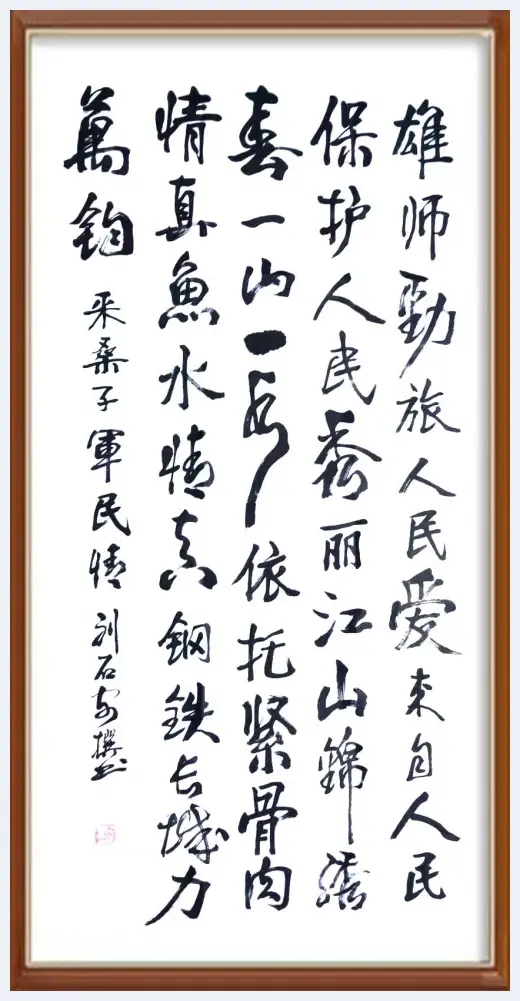 雄师勁旅人民爱来自人民
保护人民秀丽江山錦绣
春一山一依托紧骨肉
情真魚水情真钢铁长城力
萬钧 采桑子軍民情 刘石撰书